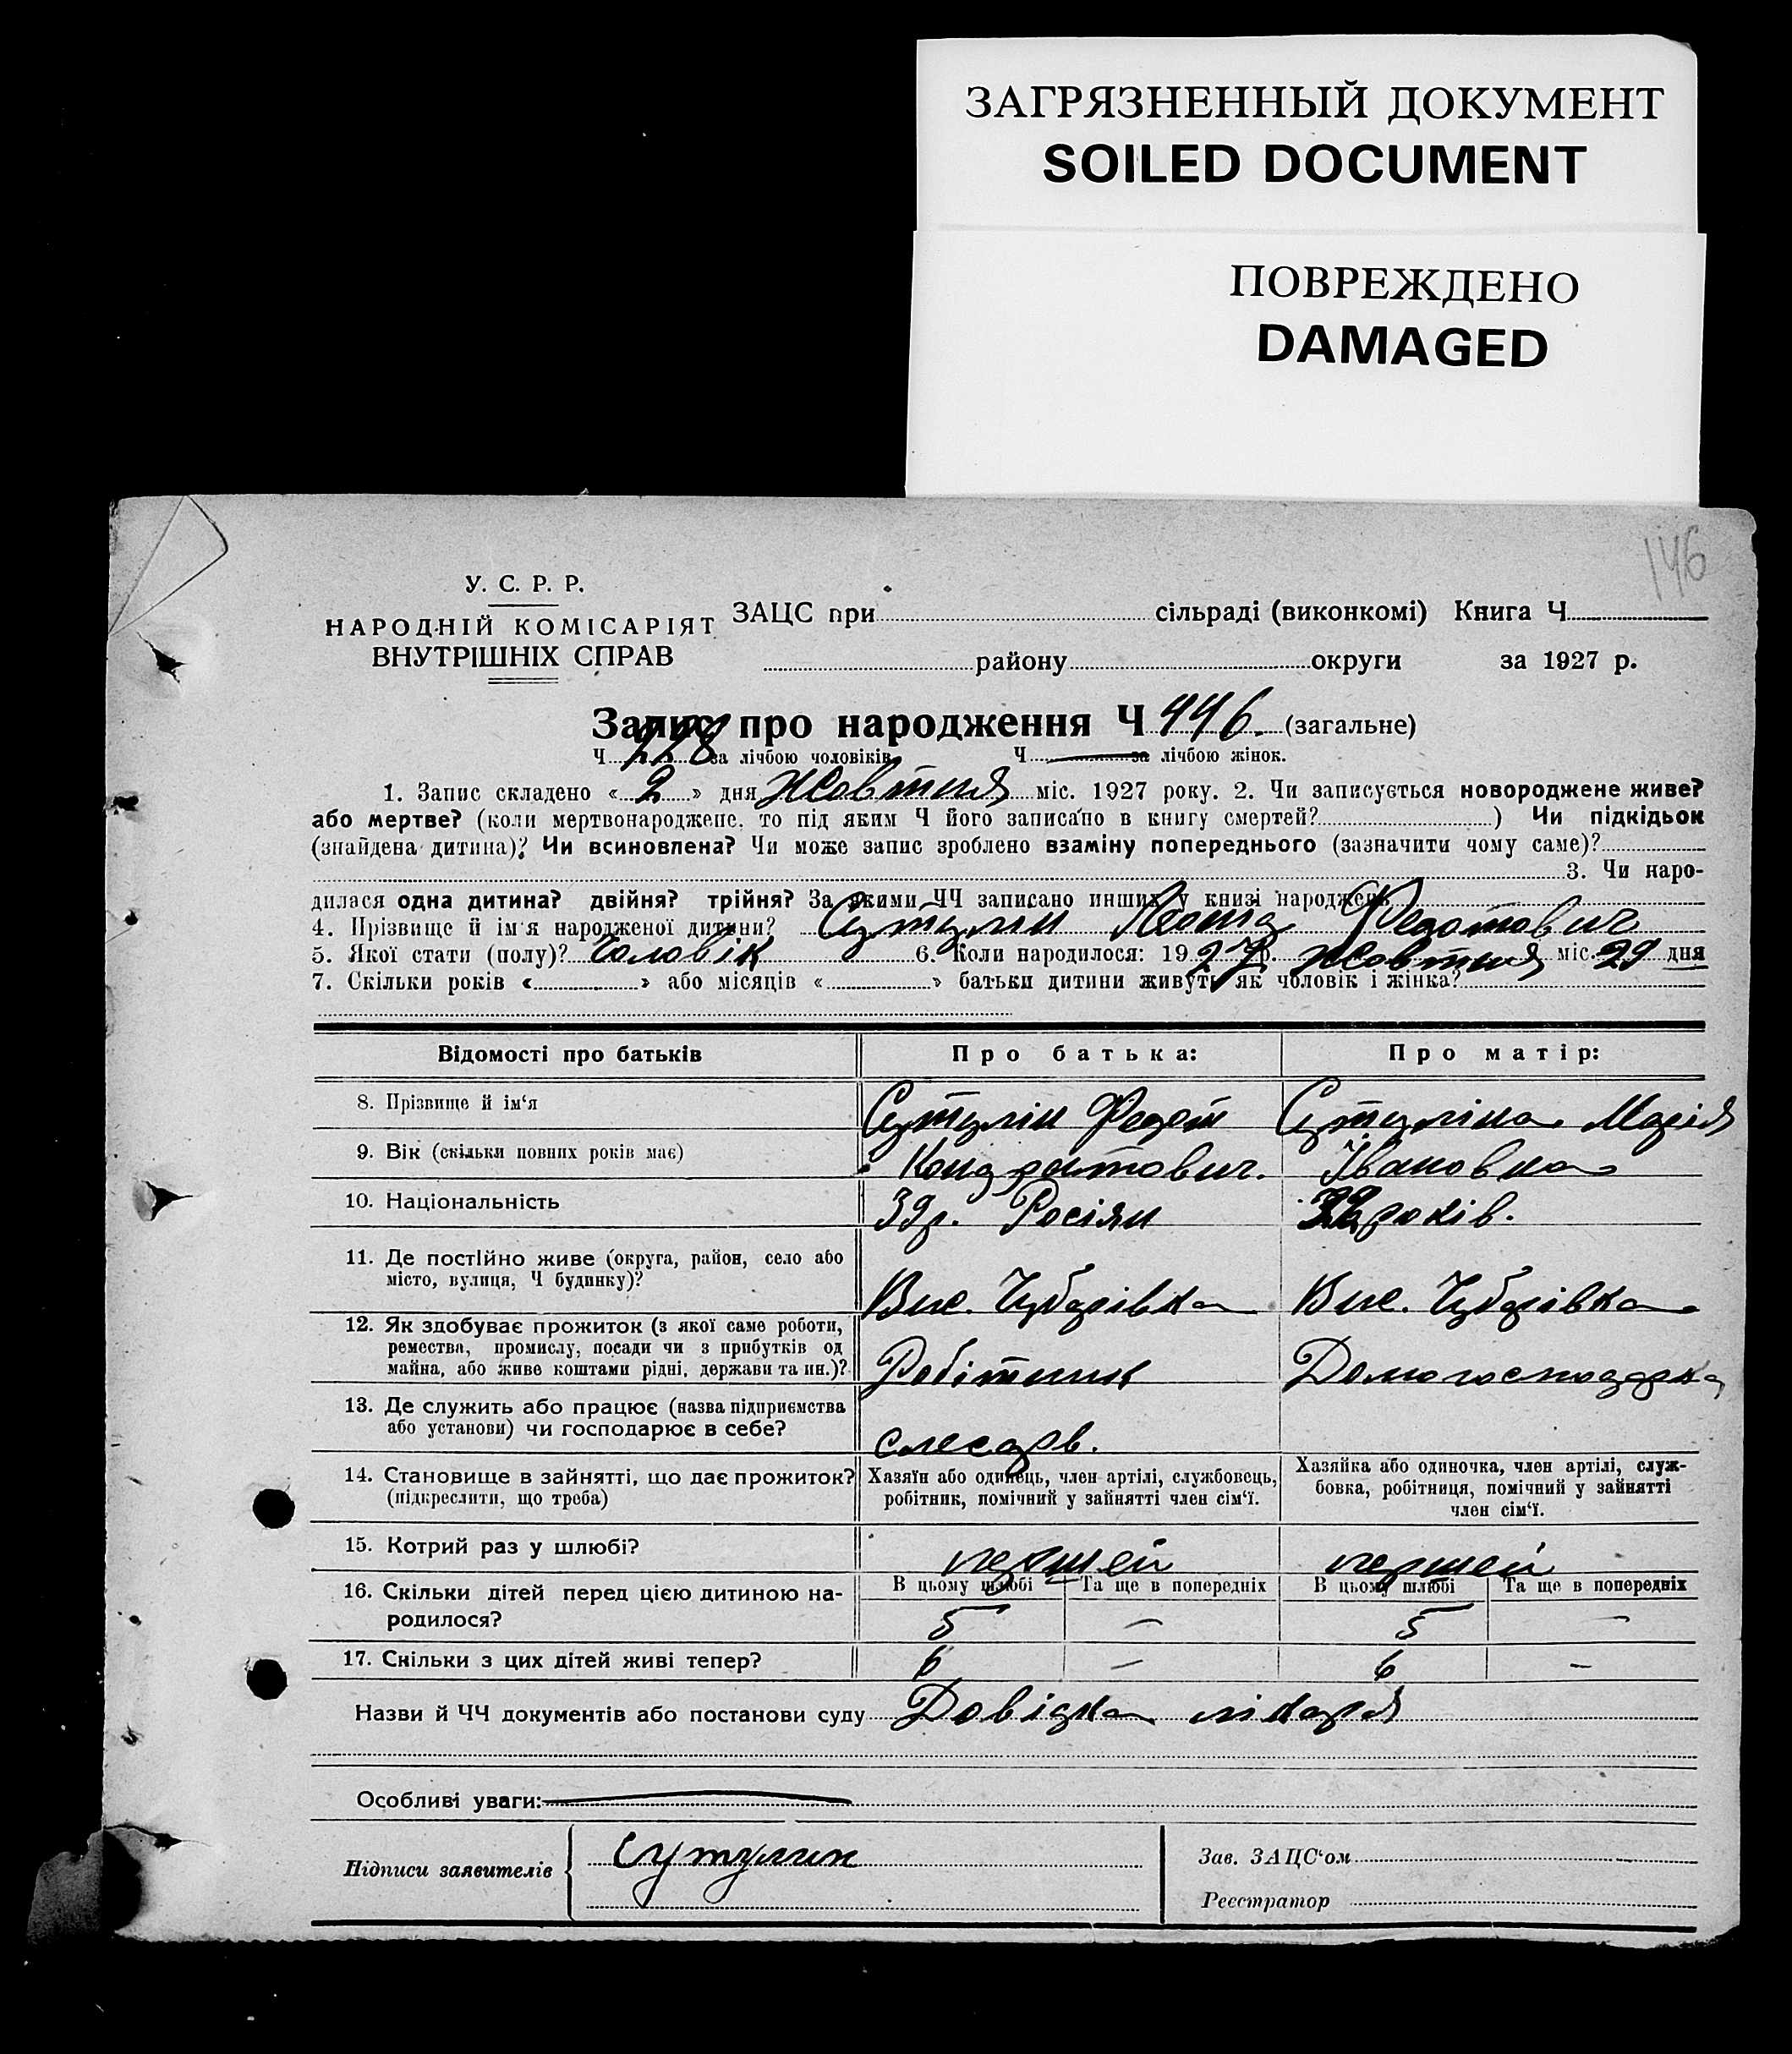 ЗАГРЯЗНЕННЫЙ ДОКУМЕНТ
SOILED DOCUMENT
ПОВРЕЖДЕНО
DAMAGED
146
У. С. Р. Р.
НАРОДНІЙ КОМІСАРІЯТ
ВНУТРІШНІХ СПРАВ
ЗАЦС при сільраді (виконкомі) Книга Ч
району округи за 1927 р.
Запис про народження Ч 446. (загальне)
Ч 228 за лічбою чоловіків Ч — за лічбою жінок.
1. Запис складено « 2 » дня Жовтня міс. 1927 року. 2. Чи записується новороджене живе?
або мертве? (коли мертвонароджене, то під яким Ч його записано в книгу смертей? ) Чи підкідьок
(знайдена дитина)? Чи всиновлена? Чи може запис зроблено взаміну попереднього (зазначити чому саме)?
3. Чи наро-
дилася одна дитина? двійня? трійня? За якими ЧЧ записано инших у книзі народжень
4. Прізвище й ім'я народженої дитини? Сутулин Леонід Федотович
5. Якої стати (полу)? Чоловік 6. Коли народилося: 1927 р. Жовтня міс. 29 дня
7. Скільки років « » або місяців « » батьки дитини живуть як чоловік і жінка?
Відомості про батьків Про батька: Про матір:
8. Прізвище й ім'я Сутулін Федот Сутуліна Марія
9. Вік (скільки повних років має) Кондратович. Івановна
10. Національність 39р. Росіян років.
11. Де постійно живе (округа, район, село або
місто, вулиця, Ч будинку)? Вис. Чубарівка Вис. Чубарівка
12. Як здобуває прожиток (з якої саме роботи,
ремества, промислу, посади чи з прибутків од
майна, або живе коштами рідні, держави та ин.)? Робітник Домогосподарка
13. Де служить або працює (назва підприємства
або установи) чи господарює в себе? слесарь.
14. Становище в зайнятті, що дає прожиток?
(підкреслити, що треба)
Хазяїн або одинець, член артілі, службовець,
робітник, помічний у зайнятті член сім'ї.
Хазяйка або одиночка, член артілі, служ-
бовка, робітниця, помічний у зайнятті
член сім'ї.
15. Котрий раз у шлюбі? першей першей
16. Скільки дітей перед цією дитиною на-
родилося?
В цьому шлюбі Та ще в попередніх В цьому шлюбі Та ще в попередніх
5 — 5 —
17. Скільки з цих дітей живі тепер? 6 — 6 —
Назви й ЧЧ документів або постанови суду Довідка лікаря
Особливі уваги: —
Підписи заявителів Сутулин
Зав. ЗАЦС'ом
Реєстратор